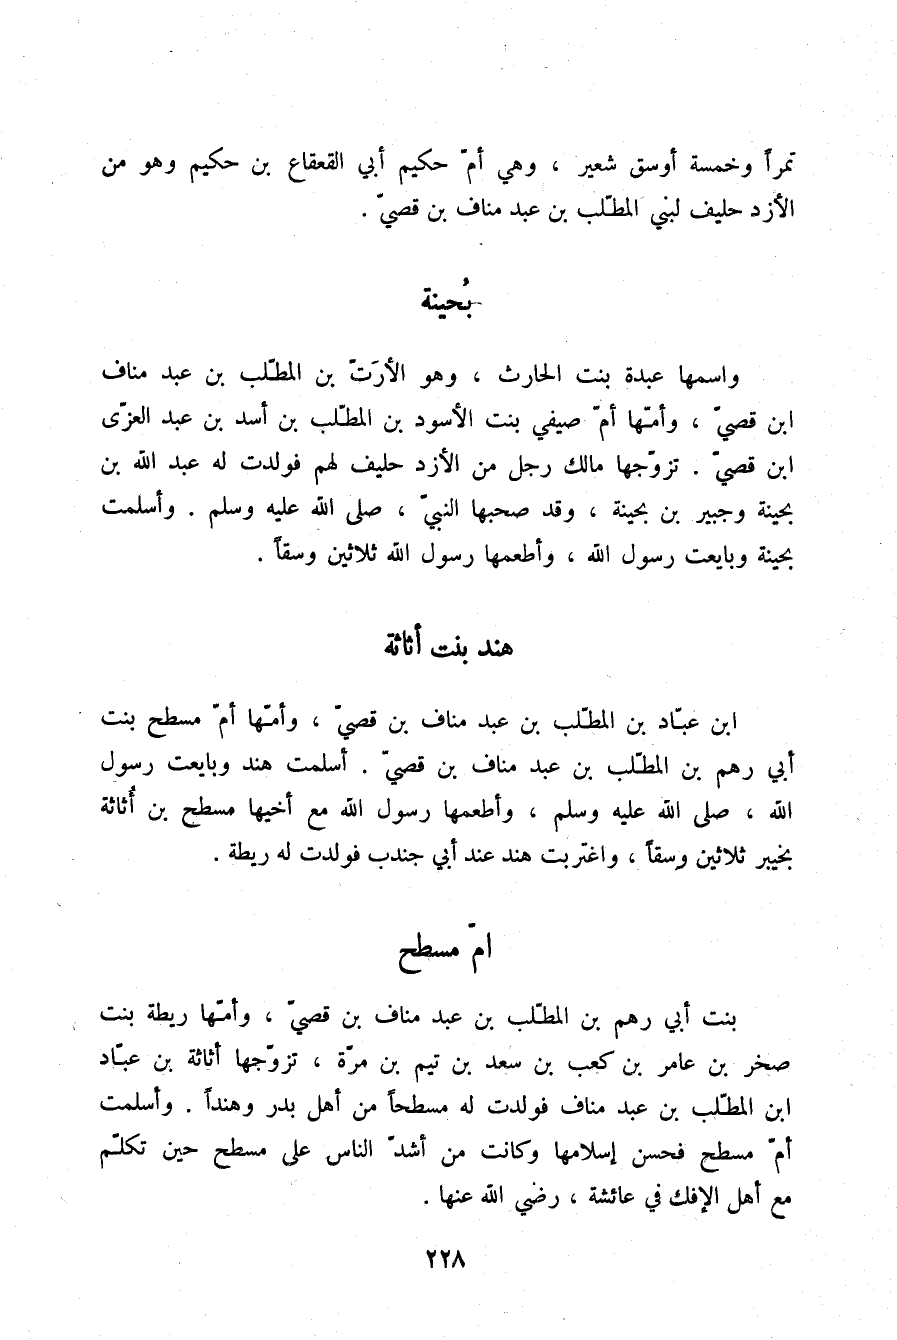 تمراً وخمسة أوسق شعير ، وهي أمّ حكيم أبي القعقاع بن حكيم وهو من
الأزد حليف لبني المطّلب بن عبد مناف بن قصيّ .
بُحينة
واسمها عبدة بنت الحارث ، وهو الأرَتّ بن المطّلب بن عبد مناف
ابن قصيّ ، وأمّها أمّ صيفي بنت الأسود بن المطّلب بن أسد بن عبد العزّى
ابن قصيّ . تزوّجها مالك رجل من الأزد حليف لهم فولدت له عبد الله بن
بحينة وجبير بن بحينة ، وقد صحبها النبيّ ، صلى الله عليه وسلم . وأسلمت
بحينة وبايعت رسول الله ، وأطعمها رسول الله ثلاثين وسقاً .
هند بنت أثاثة
ابن عبّاد بن المطّلب بن عبد مناف بن قصيّ ، وأمّها أمّ مسطح بنت
أبي رهم بن المطّلب بن عبد مناف بن قصيّ . أسلمت هند وبايعت رسول
الله ، صلى الله عليه وسلم ، وأطعمها رسول الله مع أخيها مسطح بن أُثاثة
بخيبر ثلاثين وسقاً ، واغتربت هند عند أبي جندب فولدت له ريطة .
امّ مسطح
بنت أبي رهم بن المطّلب بن عبد مناف بن قصيّ ، وأمّها ريطة بنت
صخر بن عامر بن كعب بن سعد بن تيم بن مرّة ، تزوّجها أثاثة بن عبّاد
ابن المطّلب بن عبد مناف فولدت له مسطحاً من أهل بدر وهنداً . وأسلمت
أمّ مسطح فحسن إسلامها وكانت من أشدّ الناس على مسطح حين تكلّم
مع أهل الإفك في عائشة ، رضي الله عنها .
٢٢٨